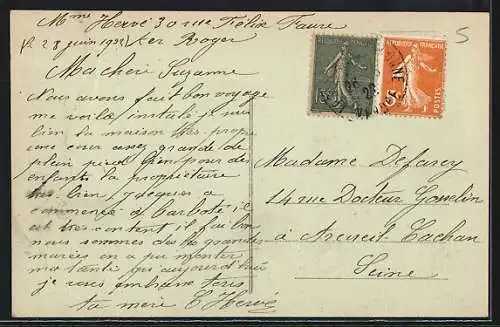 Mme Hervé 30 rue Félix Faure
le 28 juin 192 ter Royer
Ma cheri Suzanne
Nous avons fait bon voyage
me voila instalé je suis
bien la maison tres propre
une cour assez grande de
plein pied bien pour des
enfants la propriétaire
tres bien, Jacques a
commencé a barboté il
est tres content il fait bon
nous sommes dans les grandes
marées on a pu monter
ma tante qui aujourd'hui
je vous embrasse tous
ta mère C Hervé
5
REPUBLIQUE FRANÇAISE
POSTES
Madame Defarcy
14 rue Docteur Gosselin
à Arcueil-Cachan
Seine